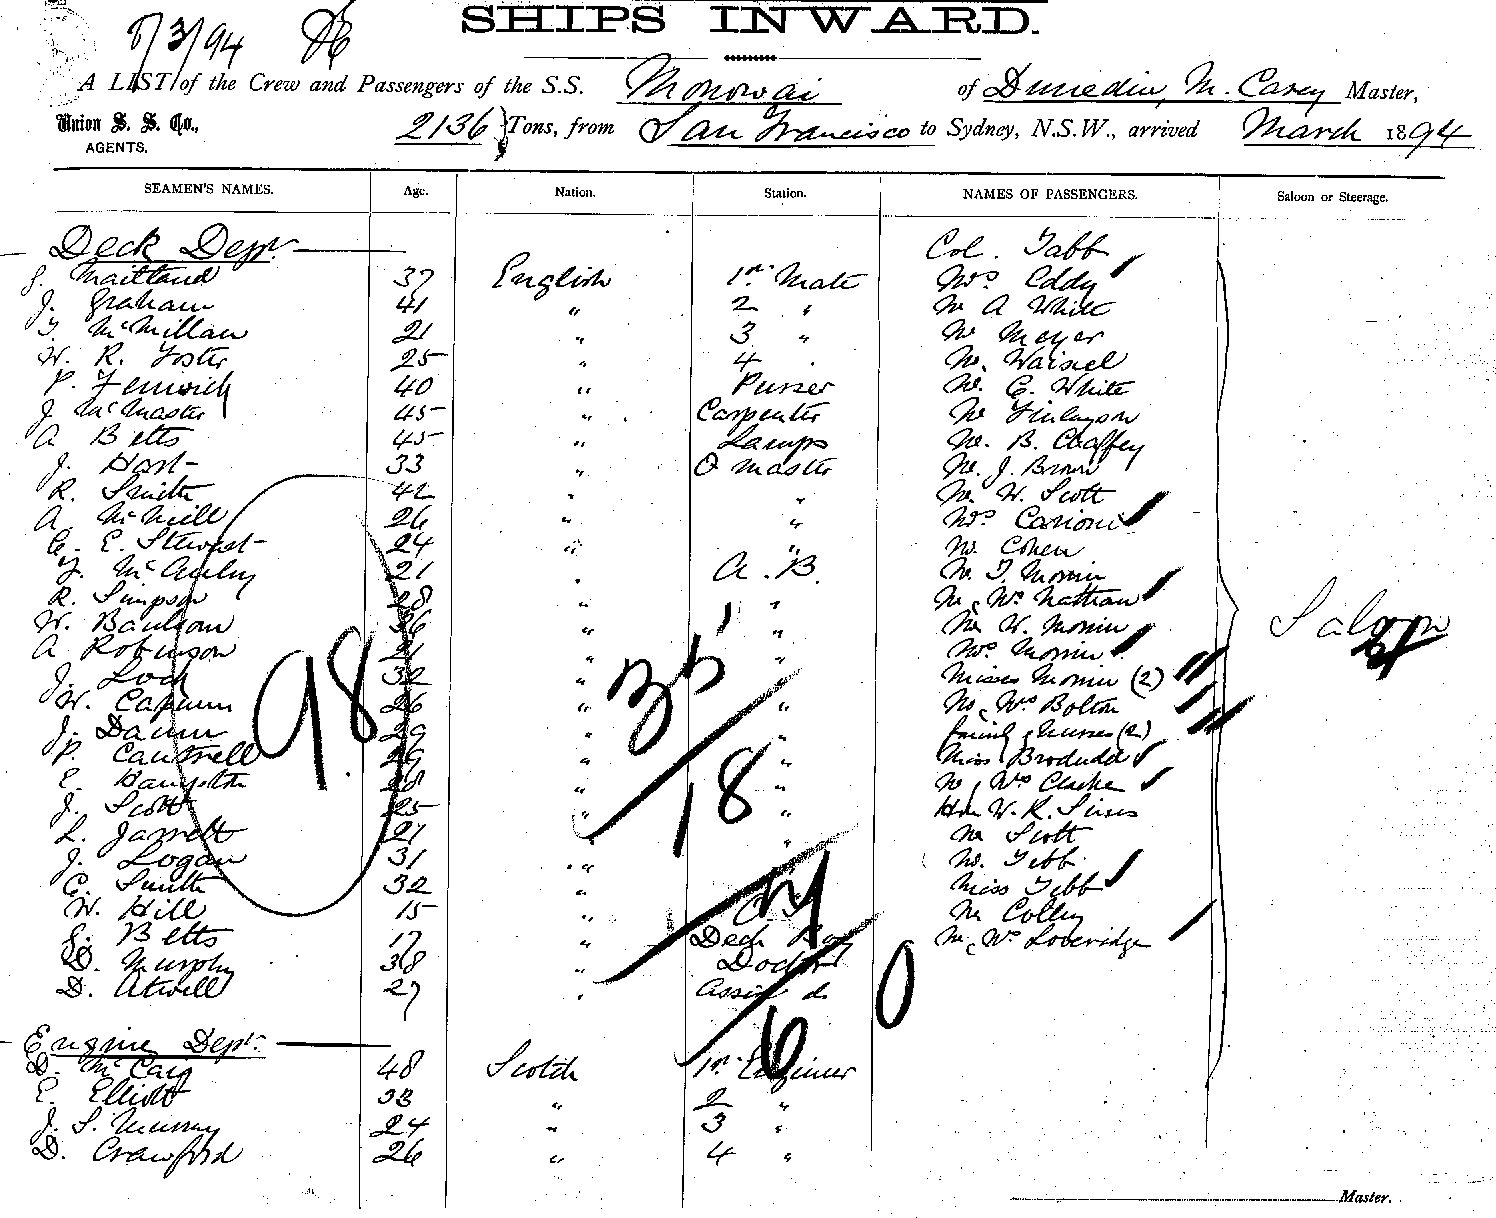 SHIPS INWARD.
8/3/94
A LIST of the Crew and Passengers of the S.S. Monowai of Dunedin, M. Carey Master,
Union S. S. Co., AGENTS.
2136 Tons, from San Francisco to Sydney, N.S.W., arrived March 1894
SEAMEN'S NAMES. Age. Nation. Station. NAMES OF PASSENGERS. Saloon or Steerage.
Deck Dept. Col. Tabb
J. Maitland 37 English 1st Mate Mrs Eddy
J. Graham 41 " 2 " Mr A White
T. McMillan 21 " 3 " Mr Meyer
W. R. Foster 25 " 4 " Mr. Waisiel
P. Fenwick 40 " Purser Mr. C. White
J McMaster 45 " Carpenter Mr Finlayson
A Betts 45 " Lamps Mr. B. Chaffey
J. Hart 33 " Q Master Mr. J. Brown
R. Smith 42 " " Mr. W. Scott
A McNeill 26 " " Mrs Carioni
C. E. Stewart 24 " " Mr. Cohen
J. McAuley 21 " A.B. Mr. T. Morrin
R. Simpson 28 " " Mr & Mrs Nathan
W. 36 " " Mr W. Morrin
A Robinson 21 " " Mrs Morrin
J. Lock 32 " " Misses Morrin (2)
W. 26 " " Mr & Mrs Bolton
J. 29 " " family & nurses (2)
P. Cantrell 29 " " Miss
E. Hampton 28 " " Mr & Mrs Clarke
J. Scott 25 " " Hon W. R.
L. Jarrett 21 " " Mr Scott
J. Logan 31 " Mr. Tebb
C. Smith 32 " Miss Tebb
W. Hill 15 " Mr Colley
Betts 17 " Deck Boy Mr & Mrs Loveridge
D. Murphy 38 " Doctor
D. Atwill 27 " Assist do
Saloon
98
35
18
0
6
Engine Dept.
D. McCaig 48 Scotch 1st Engineer
E. Elliott 33 " 2 "
J. S. Murray 24 " 3 "
D. Crawford 26 " 4 "
Master.